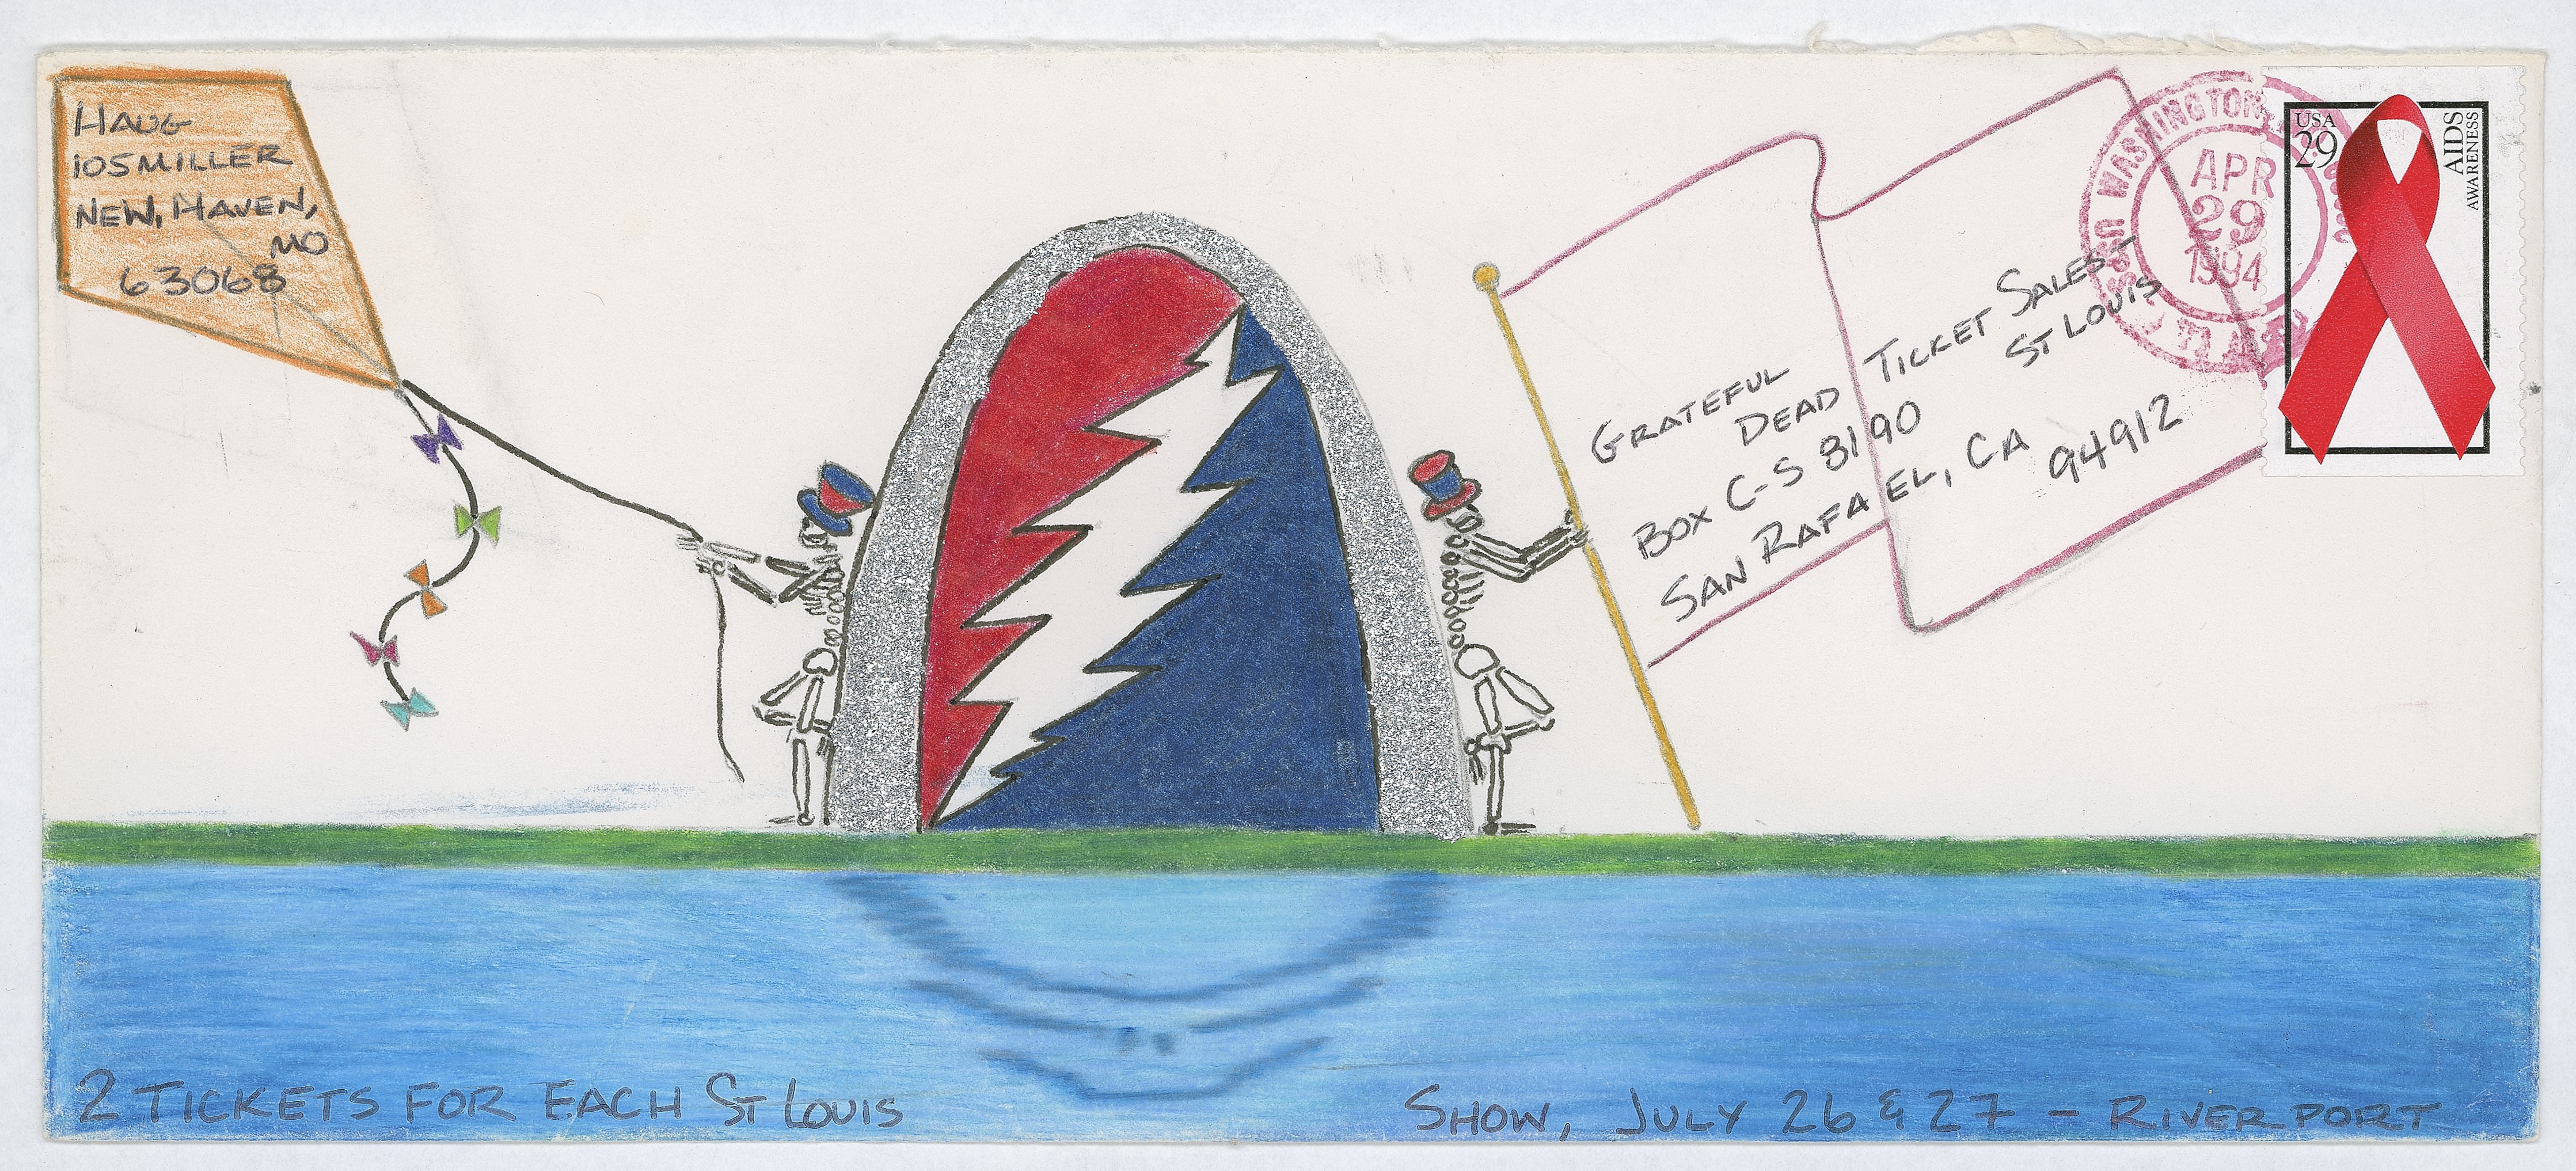 HAUG
105 MILLER
NEW, HAVEN,
MO
63068
GRATEFUL
DEAD TICKET SALES
ST LOUIS
BOX C-S 8190
SAN RAFAEL, CA
94912
WASHINGTON
USPS
APR
29
1994
USA
29
AIDS
AWARENESS
2 TICKETS FOR EACH ST LOUIS SHOW, JULY 26 & 27 - RIVERPORT